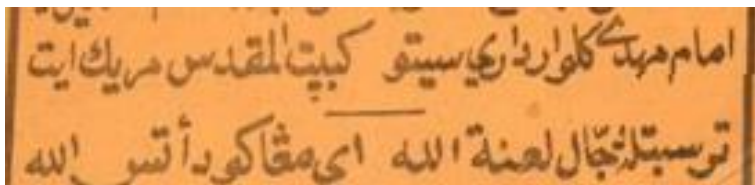 امام مهدي كلوار داري سيتو كبيت المقدس مريك ايت
ترسبتله دجّال لعنة الله اي مڠاكو دأتس الله